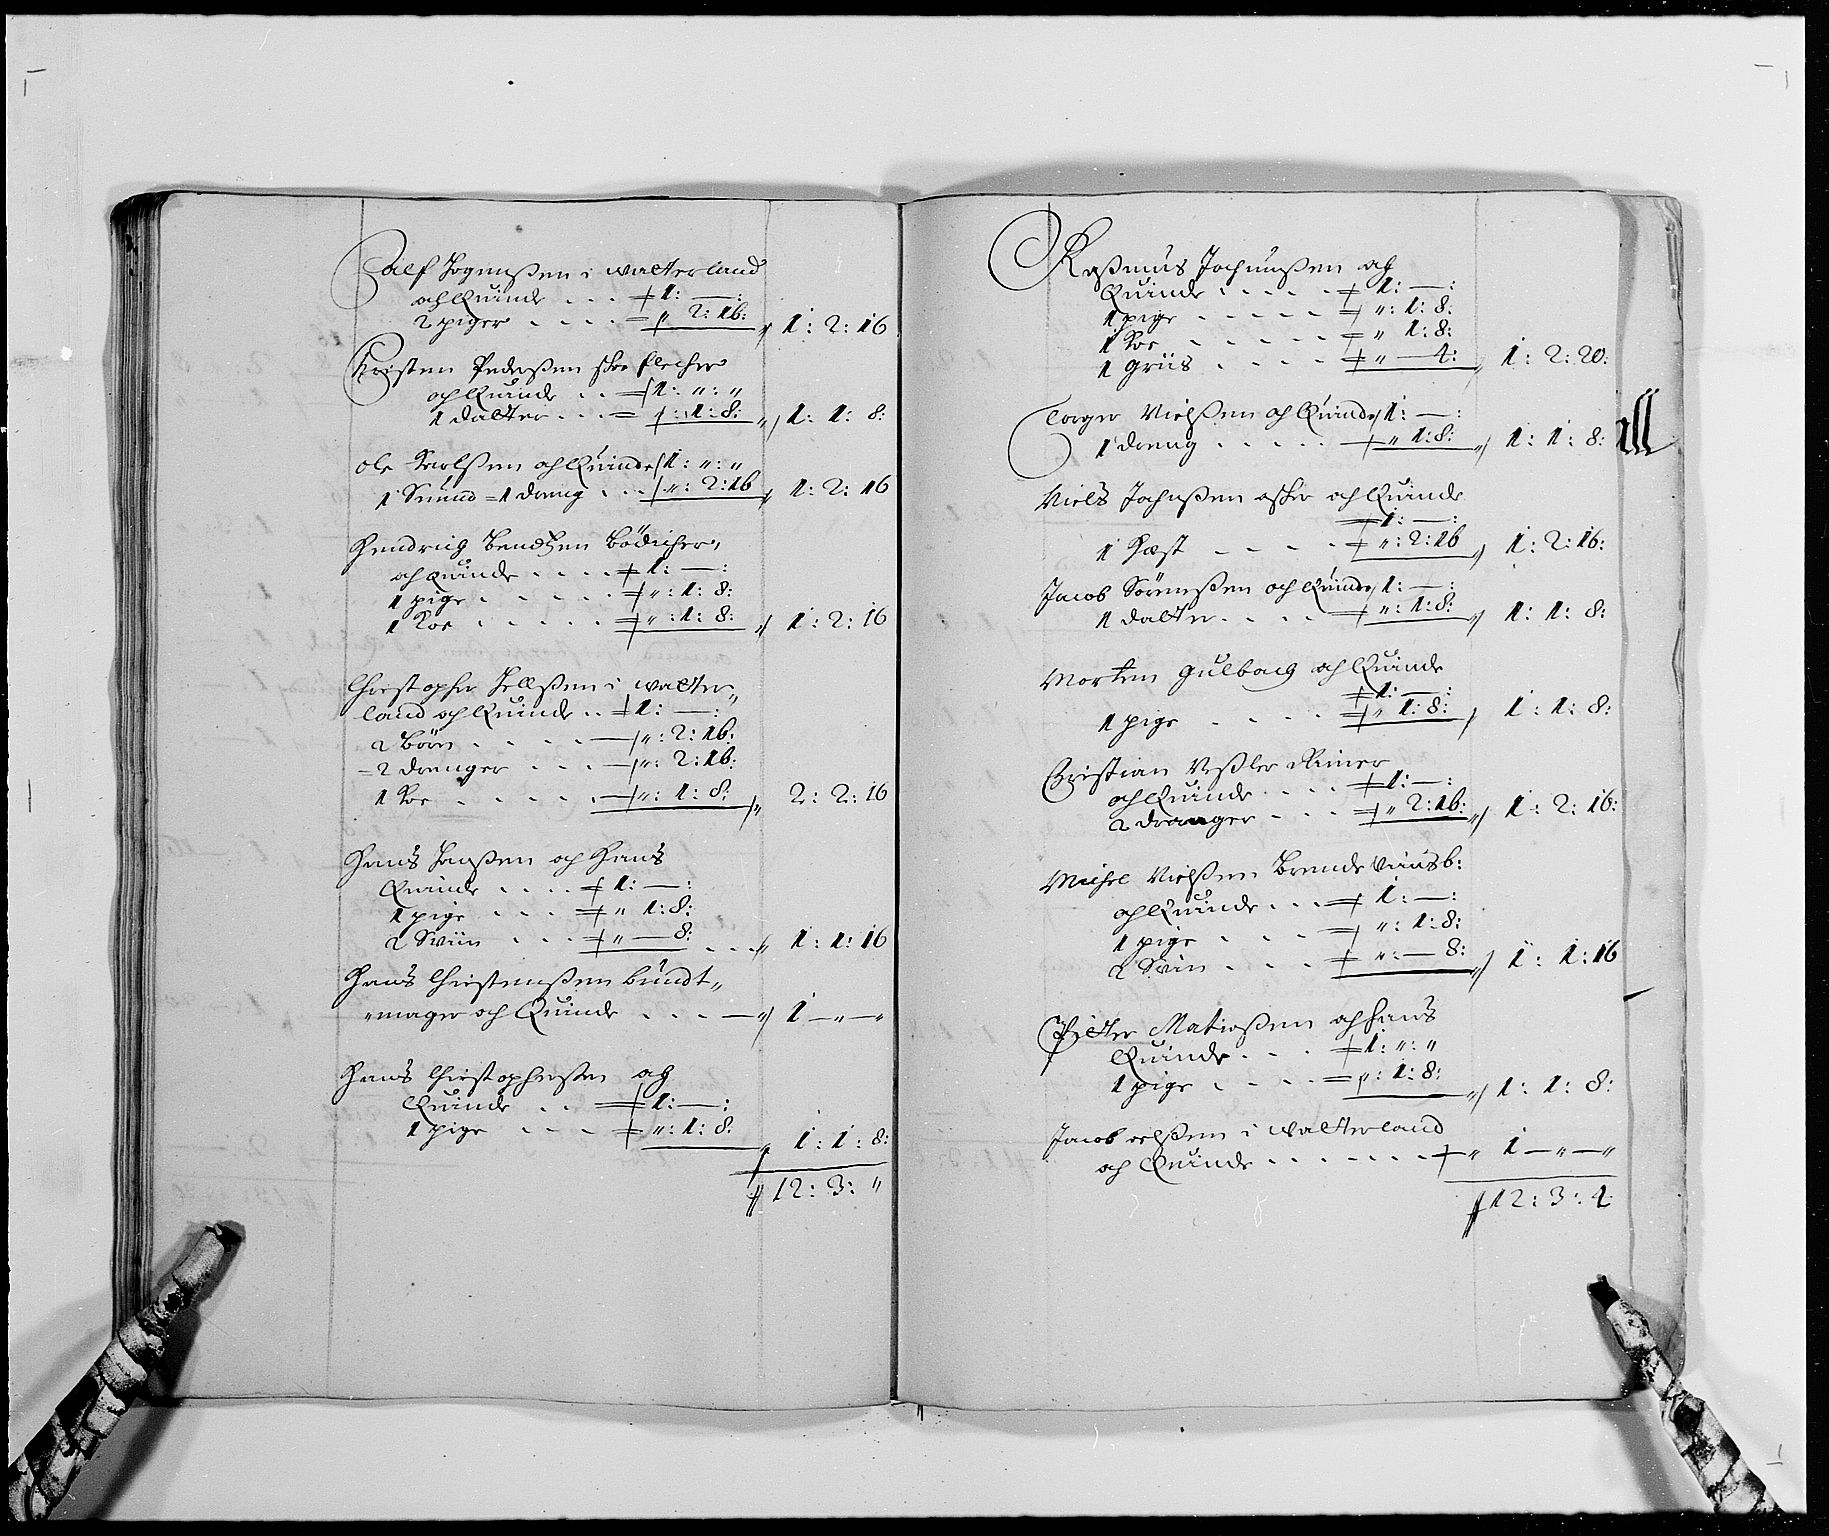 alf Jognußen i walterland
och Quinde . . . 1: — :
2 piger . . . . " 2: 16: 1: 2: 16
Kristen Pederßen skoeflecher
och Quinde . . 1: " : "
1 datter . . . : 1: 8: 1: 1: 8:
Ole Karlßen och Quinde 1: " : "
1 Suend = 1 dreng . . . ": 2: 16 1: 2: 16
Hendrich Bendtzen Bödicher,
och Quinde . . . . 1: — :
1 pige . . . . . ": 1: 8:
1 Koe . . . . . ": 1: 8: 1: 2: 16
Christopher Jellßen i walter„
land och Quinde . . 1: — :
2 Börn . . . . . ": 2: 16:
= 2 drenger . . . ": 2: 16:
1 Koe . . . . . ": 1: 8: 2: 2: 16
Hans Hanßen och Hans
Quinde . . . . 1: — :
1 pige . . . " 1: 8:
2 Sviin . . . " — 8: . . . 1: 1: 16
Hans Christenßen bundt„
„mager och Quinde . . . 1 — " — "
Hans Christophersen og
Quinde . . 1: — :
1 pige . . . . ": 1: 8: 1: 1: 8:
12: 3: "
Raßmus Jochumßen og
Quinde . . . . . 1: — :
1 pige . . . . . ": 1: 8:
1 Koe . . . . . . " 1: 8:
1 griis . . . . " — 4: 1: 2: 20:
Torger Nielßen och Quinde 1: — :
1 dreng . . . . . " 1: 8: 1: 1: 8:
Niels Jochußen och Quinde
1: — :
1 Hæst . . . . ": 2: 16 1: 2: 16:
Jacob Sörenßen och Quinde 1: — :
1 datter . . . . ": 1: 8: 1: 1: 8:
Morten gulbag och Quinde
1: — :
1 pige . . . . " 1: 8: 1: 1: 8:
Christian Reimer
och Quinde . . . . 1: — :
2 drenger . . . . " 2: 16: 1: 2: 16:
Michel Nielßen Brendeviinsb:
och Quinde . . . 1: — :
1 pige . . . . ": 1: 8:
2 Sviin . . . . ": — 8: 1: 1: 16
Pitter Matießen och hans
Quinde . . . 1: " : "
1 pige . . . . . ": 1: 8: 1: 1: 8:
Jacob olßen i walterland
och Quinde . . . . . . . " 1 — " — "
12: 3: 4